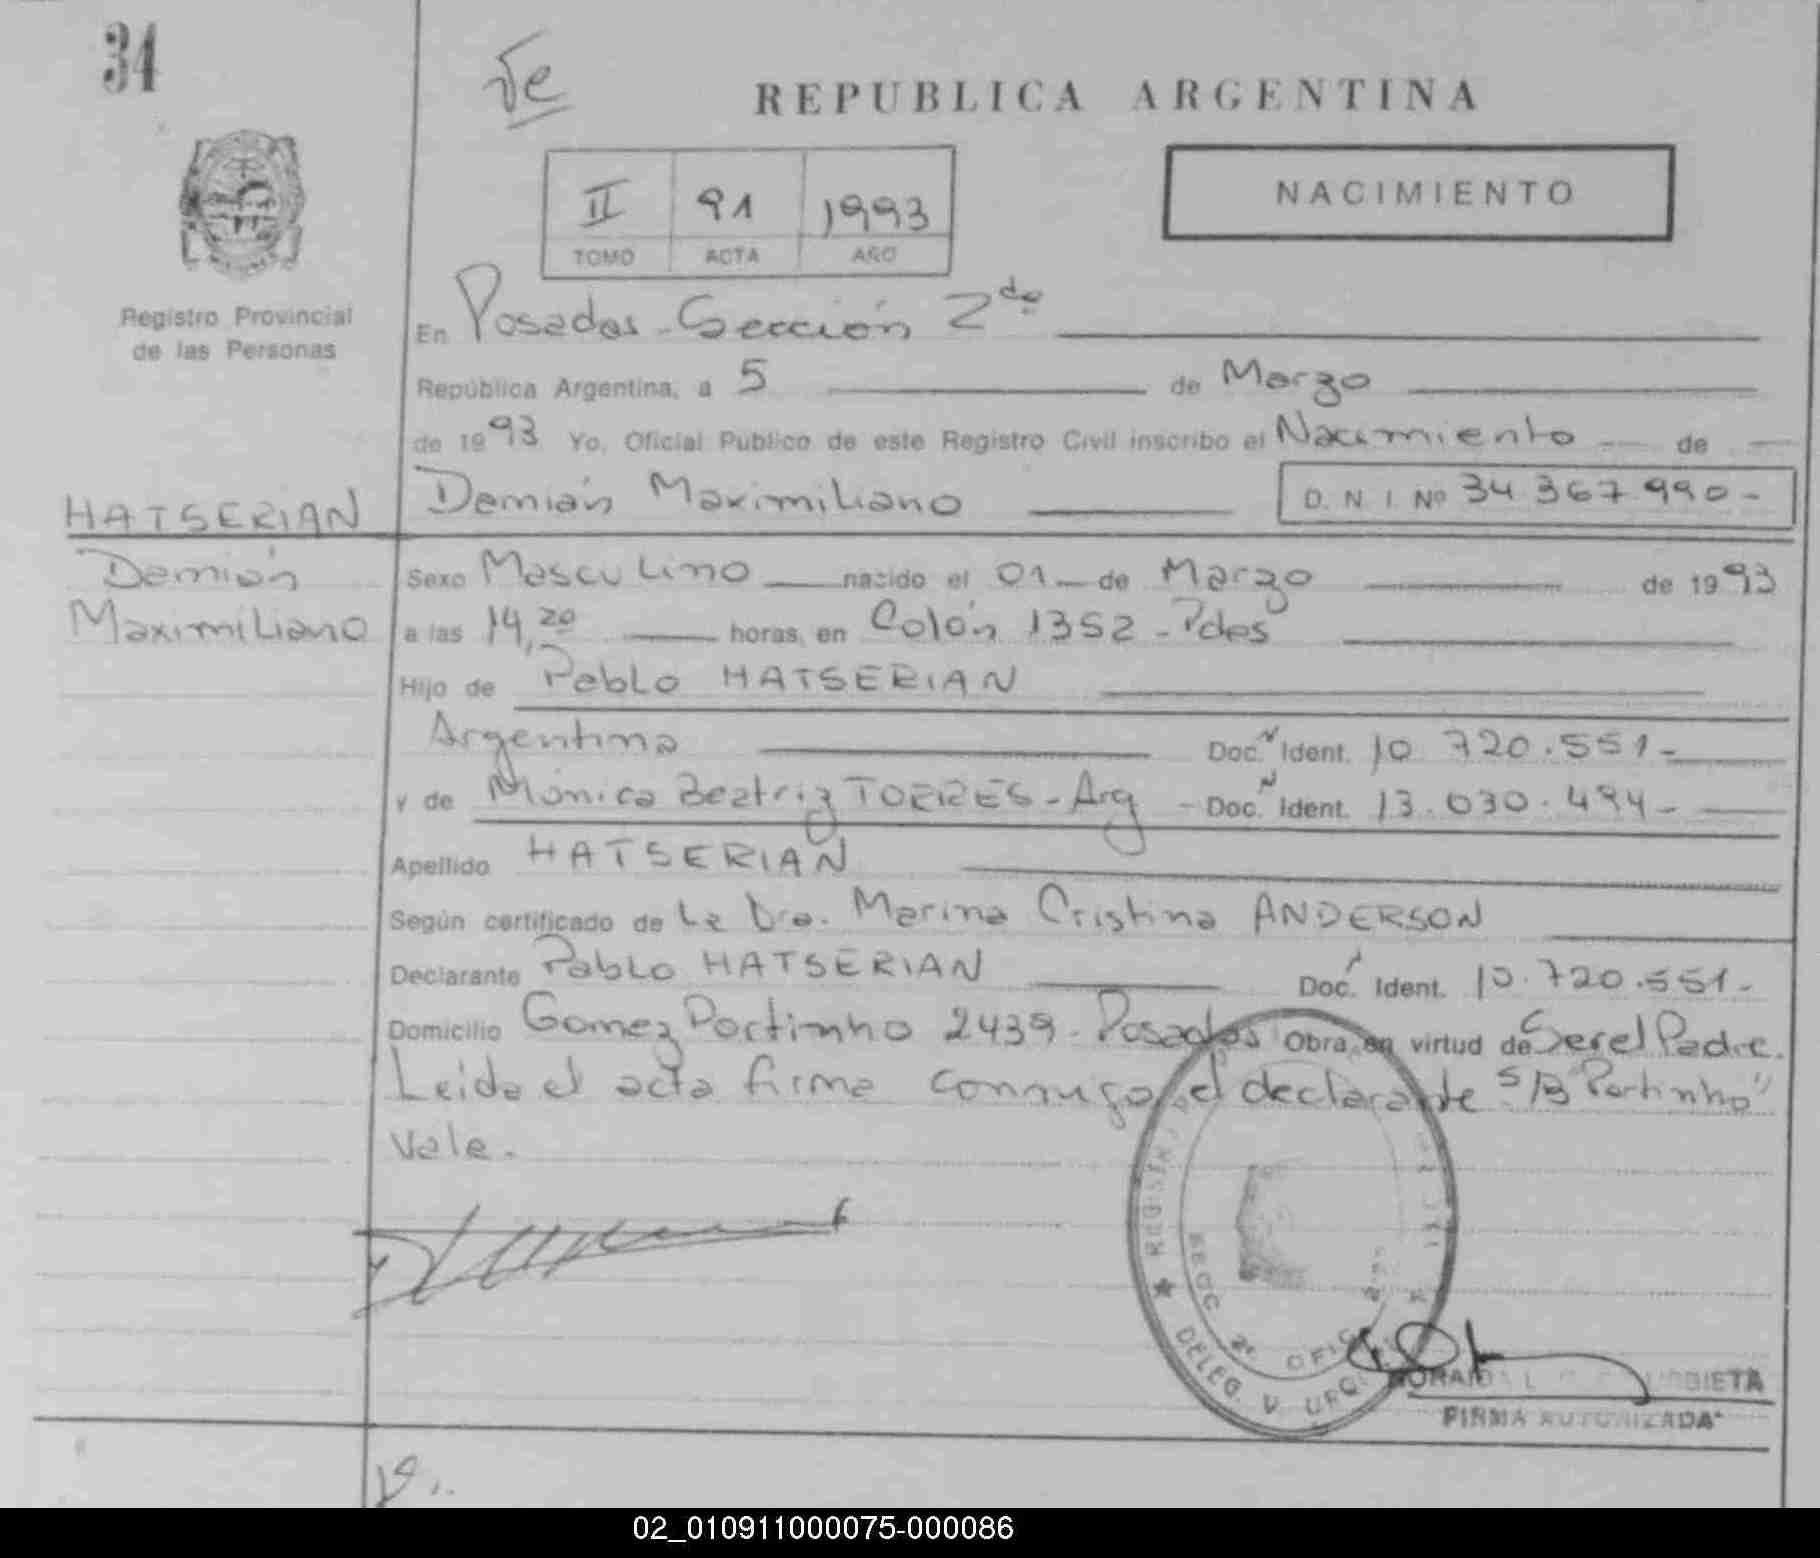 34
REPUBLICA ARGENTINA
II 91 1993
TOMO ACTA AÑO
NACIMIENTO
Registro Provincial
de las Personas
En Posadas - Sección 2da
República Argentina, a 5 de Marzo
de 1993 Yo, Oficial Público de este Registro Civil inscribo el Nacimiento de
HATSERIAN
Demián
Maximiliano
Demián Maximiliano D. N. I. Nº 34.367.990-
Sexo Masculino nacido el 01 de Marzo de 1993
a las 14,20 horas, en Colón 1352 - Pdas
Hijo de Pablo HATSERIAN
Argentina Doc. Ident. 10.720.551-
y de Mónica Beatriz TORRES - Arg - Doc. Ident. 13.030.494-
Apellido HATSERIAN
Según certificado de La Dra. Marina Cristina ANDERSON
Declarante Pablo HATSERIAN Doc. Ident. 10.720.551-
Domicilio Gomez Portinho 2439 - Posadas Obra en virtud de Ser el Padre.
Leida el acta firma conmigo el declarante S/B "Portinho"
Vale.
★ REGISTR
SECC 2ª OFIC
DELEG. V. URQ
FIRMA AUTORIZADA
02_010911000075-000086